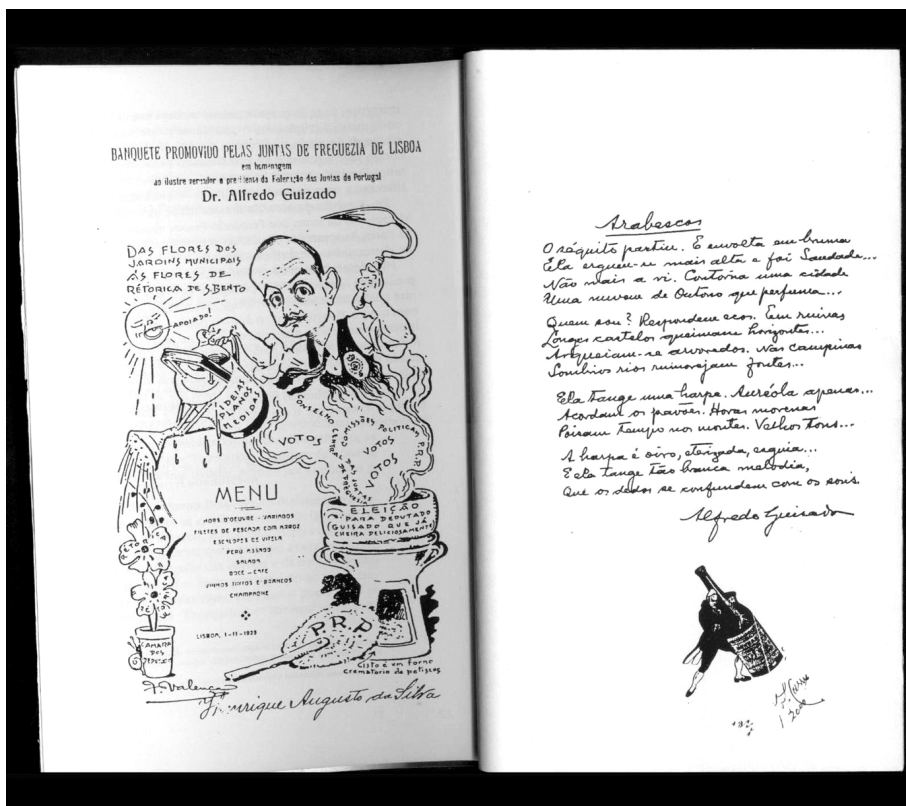 BANQUETE PROMOVIDO PELAS JUNTAS DE FREGUEZIA DE LISBOA
em homenagem
ao ilustre vereador e presidente da Federação das Juntas de Portugal
Dr. Alfredo Guizado
DAS FLORES DOS
JARDINS MUNICIPAIS
ÁS FLORES DE
RÉTORICA DE S. BENTO
APOIADO!
IDEIAS
PLANOS
MEDIDAS
VOTOS
CONSELHO CENTRAL DAS JUNTAS DE FREGUEZIA
COMISSÕES POLITICAS P.R.P.
VOTOS
VOTOS
ELEIÇÃO
PARA DEPUTADO
GUISADO QUE JÁ
CHEIRA DELICIOSAMENTE
MENU
HORS D'OEUVRE - VARIADOS
FILETES DE PESCADA COM ARROZ
ESCALOPES DE VITELA
PERÚ ASSADO
SALADA
DOCE - CAFE
VINHOS TINTOS E BRANCOS
CHAMPAGNE
LISBOA, 1-11-1923
P.R.P.
CAMARA
DOS
Cisto é um forno
crematorio de petiscos
F. Valença
Henrique Augusto da Silva
Arabescos
O séquito partiu. E envolta em bruma
Ela ergueu-se mais alta e foi Saudade...
Não mais a vi. Contorna uma cidade
Uma nuvem de Outono que perfuma...
Quem sou? Respondem ecos. Em ruinas
Longes castelos queimam horizontes...
Arqueiam-se arvoredos. Nas campinas
Sombrios rios rumorejam fontes...
Ela tange uma harpa. Auréola apenas...
Acordam os pavões. Horas morenas
Poisam Tempo nos montes. Velhos tons...
A harpa é oiro, eterizada, esguia...
E ela tange tão branca melodia,
Que os dedos se confundem com os sons.
Alfredo Guisado